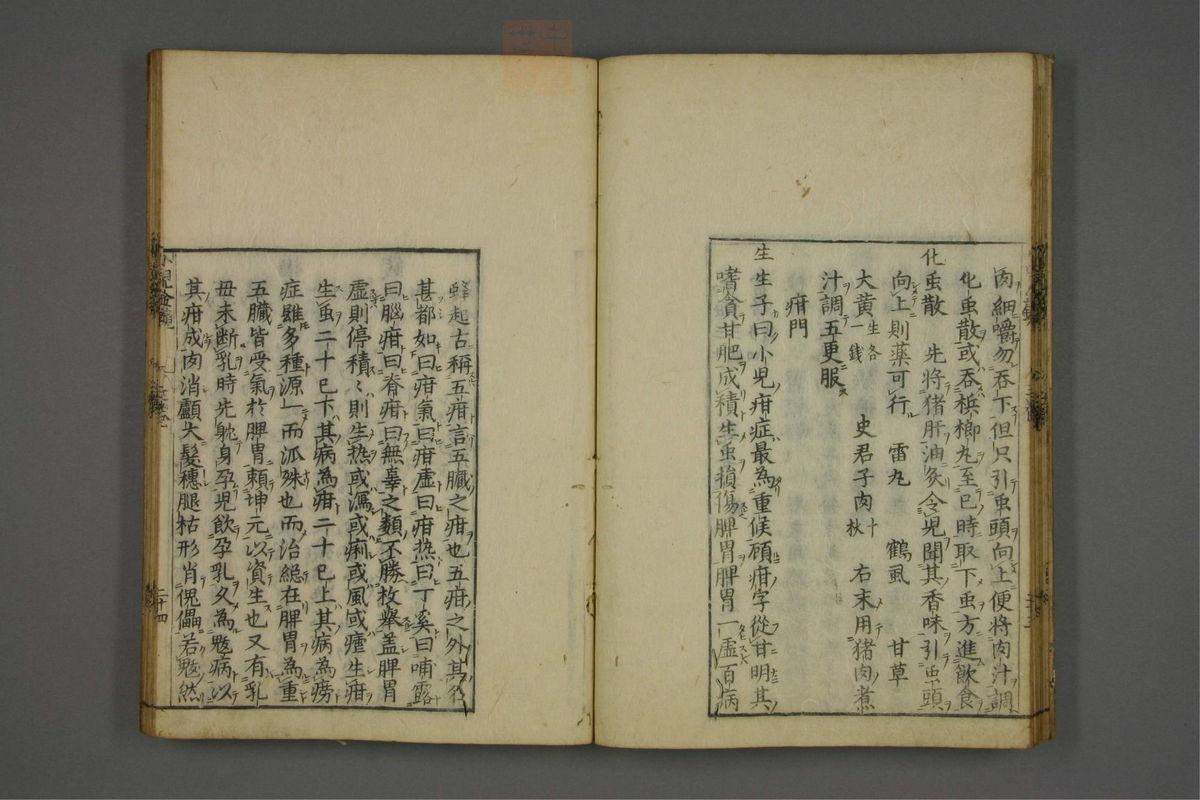 肉細嚼勿吞下但只引虫頭向上便將肉汁調
化虫散或吞梹榔丸至巳時取下虫方進飲食
化虫散　先將猪肝油灸令児聞其香味引虫頭
向上則薬可行　雷丸　鶴虱　甘草
大黄各生一錢　史君子肉十枚　右末用猪肉煮
汁調五更服
疳門
生生子曰小児疳症最為重候顧疳字從甘明其
嗜食甘肥成積生虫損傷脾胃脾胃一虛百病
蜂起古称五疳言五臓之疳也五疳之外其名
甚都如曰疳氣曰疳虛曰疳热曰丁奚曰哺露
曰腦疳曰脊疳曰無辜之類不勝枚舉盖脾胃
虛則停積〻則生热或瀉或痢或風或瘧生疳
生虫二十已下其病為疳二十已上其病為癆
症雖多種源一而派殊也而治緫在脾胃為重
五臓皆受氣於脾胃頼坤元以資生也又有乳
母未断乳時先躭身孕児飲孕乳久為魃病以
其疳成肉消顱大髮穗腿枯形肖傀儡若魃然
二十四